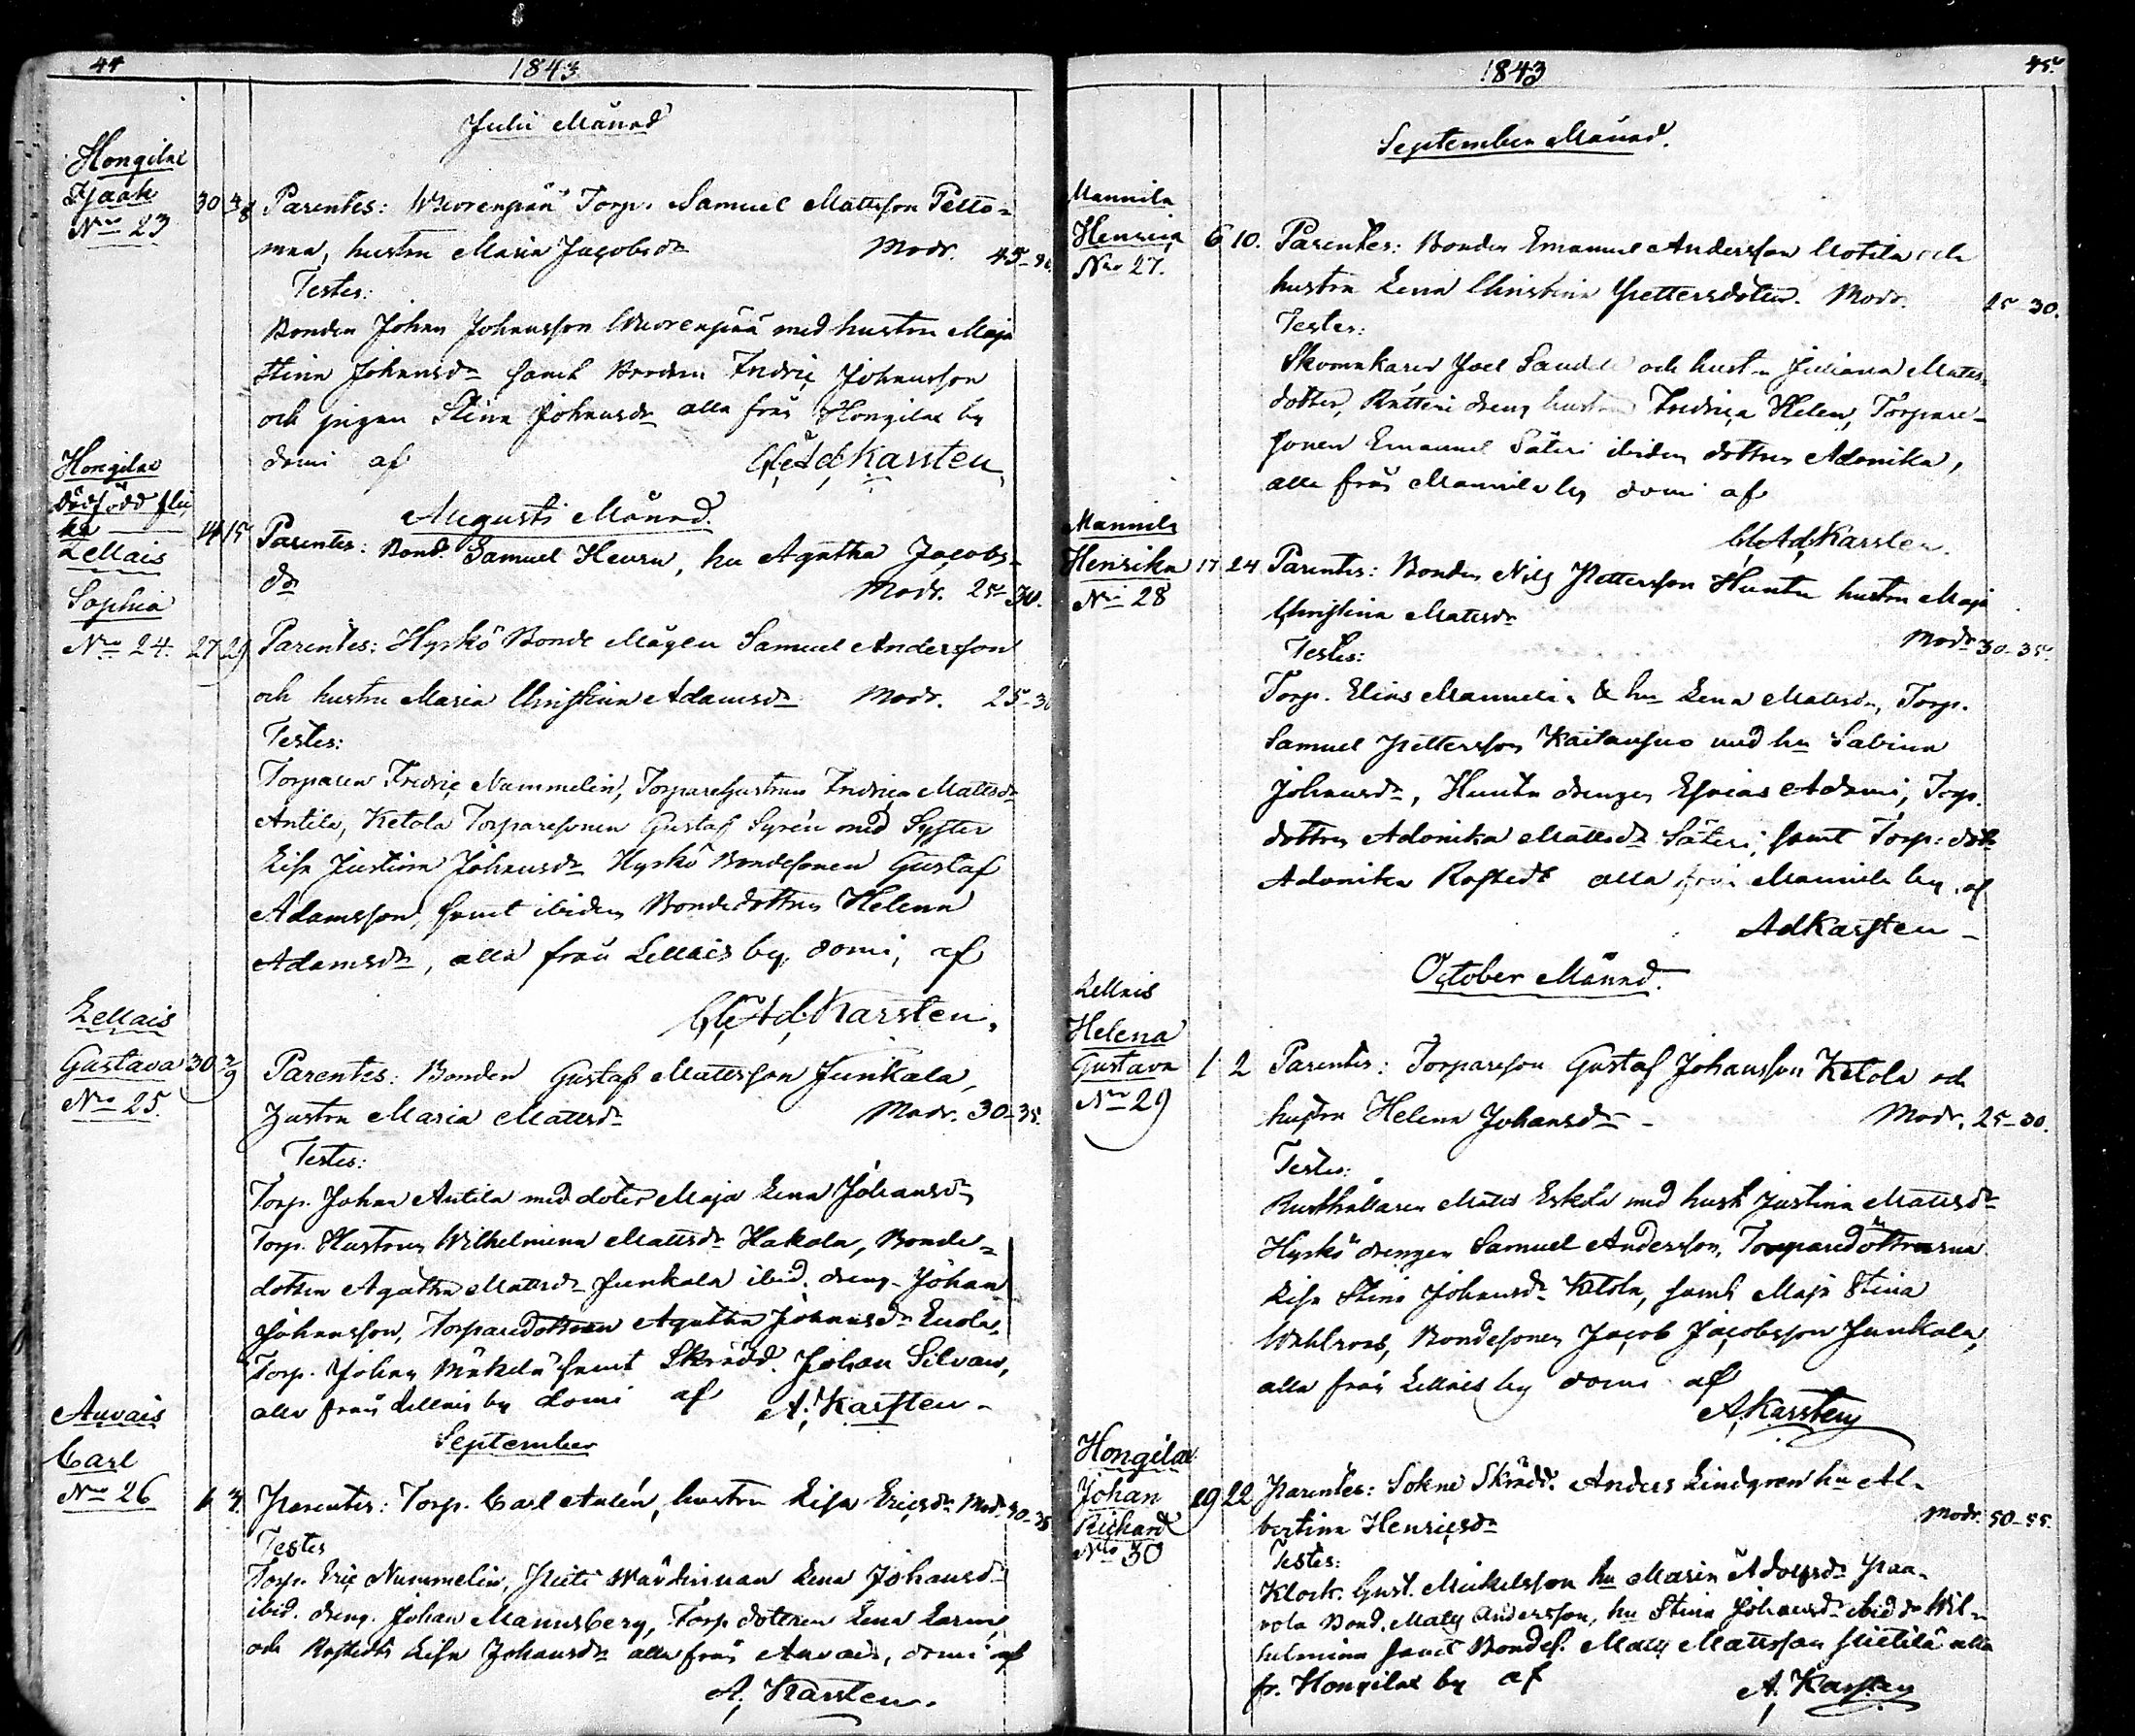 44
1843
Julii Månad
Hongilae
Isaak
Nro 23
30 4/8 Parentes: Wuorenpää Torp. Samuel Mattsson Pelto-
maa, hustru Maria Jacobsdr Modr. 45-50.
Testes:
Bonden Johan Johansson Wuorenpää med hustru Maja
Stina Johansdr samt Bonden Fredric Johansson
och pigan Stina Johansdr alla från Hongilae by
domi af Karsten
Augusti Månad.
Hongilae
dödfödd flic
ka
14 15 Parentes: Bond. Samuel Heuru, hu Agatha Jacobs-
dr Modr. 25-30.
Lellais
Sophia
Nro 24. 27 29 Parentes: Hyrkö Bonde Mågen Samuel Andersson
och hustru Maria Christina Adamsdr Modr. 25-30
Testes:
Torparen Fredric Nummelin, Torparehustrun Fredrica Mattsdr
Antila, Ketola Torparesonen Gustaf Syrén med Syster
Lisa Justina Johansdr Hyrkö Bondesonen Gustaf
Adamsson, samt ibidem Bondedottren Helena
Adamsdr, alla från Lellais by, domi, af
Karsten.
Lellais
Gustava
Nro 25.
30 2/9 Parentes: Bonden Gustaf Mattsson Junkala,
hustru Maria Mattsdr Modr. 30-35.
Testes:
Torp. Johan Antila med doter Maja Lena Johansdr
Torp. Hustrun Wilhelmina Mattsdr Hakola, Bonde-
dottren Agatha Mattsdr Junkala ibid. dreng. Johan
Johansson, Torparedottren Agatha Johansdr
Torp. Johan Mäkelä samt Skrädd. Johan Silvan,
alla från Lellais by domi af A. Karsten
September
Auvais
Carl
Nro 26
1 3. Parentes: Torp. Carl Aulén, hustru Lisa Ericsdr Modr. 30-35
Testes
Torp. Eric Nummelin, Lena Johansdr
ibid. dreng. Johan Mannsberg, Torp dottren Lena
och Rostedts Lisa Johansdr alla från Auvais, domi af
A. Karsten.
1843
45.
September Månad.
Mannila
Henrica
Nro 27.
6 10. Parentes: Bonden Emanuel Andersson Uotila och
hustru Lena Christina Pettersdotter. Modr. 25-30.
Testes:
Skomakaren Joel Sandell och hustru Juliana Matts-
dotter, Rätteri dreng hustrun Fredrica Helen, Torpare-
sonen Emanuel Säteri ibidem dottren Adonika,
alla från Mannila by domi af
Karsten.
Mannila
Henrika
Nro 28
17 24 Parentes: Bonden Nils Pettersson Huntu hustru Maja
Christina Mattsdr Modr 30-35.
Testes:
Torp. Elias Mannelin & hu Lena Mattsdr, Torp.
Samuel Pettersson Kaitansuo med hu Sabina
Johansdr, Huntu drengen Esaias Adami, Torp.
dottren Adonika Mattsdr Säteri, samt Torp: dott
Adonika Rostedt alla från Mannila by af
Ad Karsten
October Månad.
Lellais
Helena
Gustava
Nro 29
1 2 Parentes: Torpareson Gustaf Johansson Ketola och
hustru Helena Johansdr Modr. 25-30.
Testes:
Rusthållaren Matts Eskola med hust. Justina Mattsdr
Hyrkö drengen Samuel Andersson, Torparedöttrarna
Lisa Stina Johansdr Ketola, samt Maja Stina
Wahlroos, Bondesonen Jacob Jacobsson Junkala,
alla från Lellais by domi af
A. Karsten
Hongilae
Johan
Richard
Nro 30
19 22 Parentes: Sokne Skrädd. Anders Lindgren hu Al-
bertina Henricsdr Modr. 50-55.
Testes:
Klock. Gust. Mickelsson hu Maria Adolfsdr Paa-
vola Bond. Mats Andersson, hu Stina Johansdr ibid dr Wil-
helmina samt Bondes. Mats Mattsson Pietilä alla
fr. Hongilae by af A. Karsten